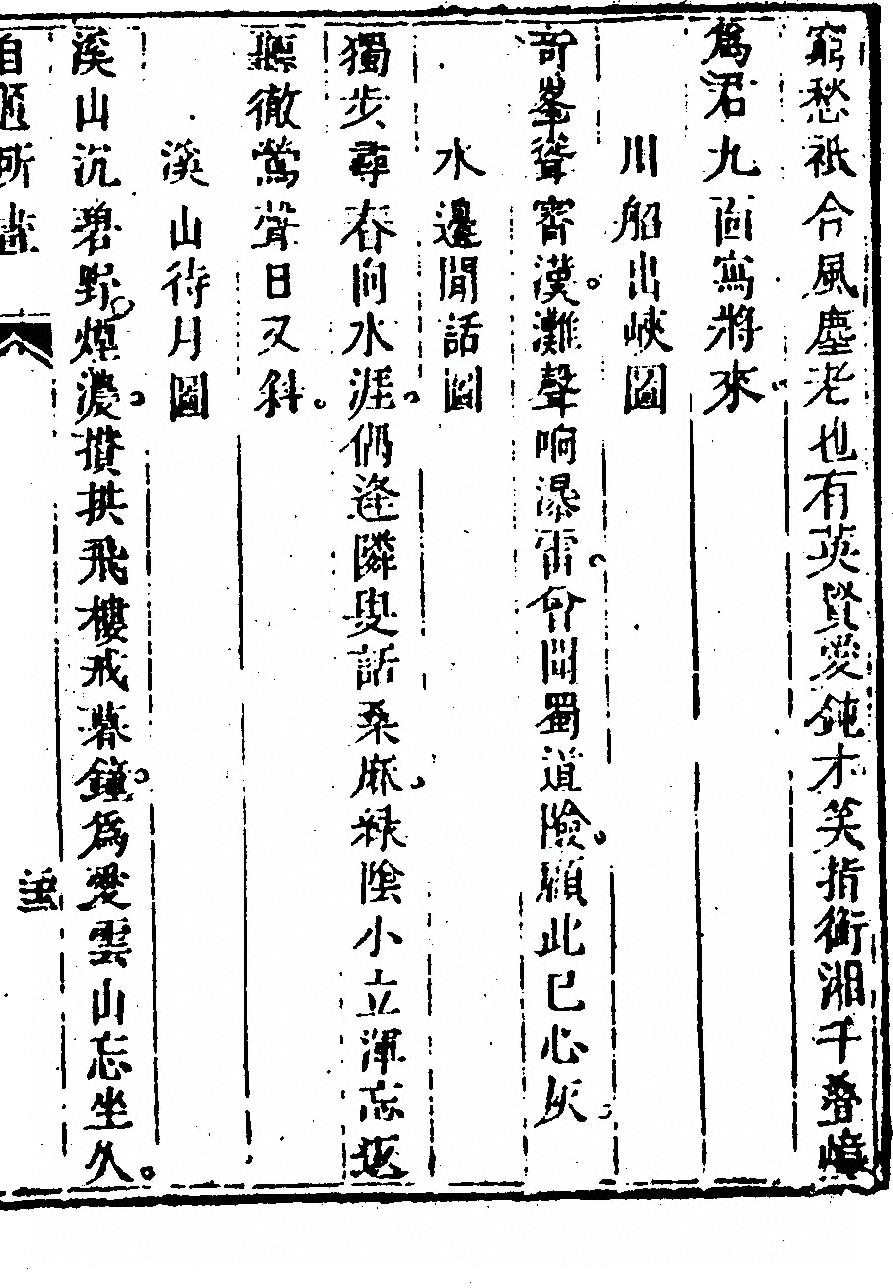 窮愁祇合風塵老也有英賢愛鈍才笑指衡湘千疊嶂
為君九面寫將來
川船出峽圖
奇峯聳霄漢灘聲响瀑雷曾聞蜀道險顧此已心灰
水邊閒話圖
獨步尋春向水涯偶逢隣叟話桑麻綠陰小立渾忘返
聽徹鶯聲日又斜
溪山待月圖
溪山沉碧野煙濃攢拱飛樓戒暮鐘為愛雲山忘坐久
自題所畫